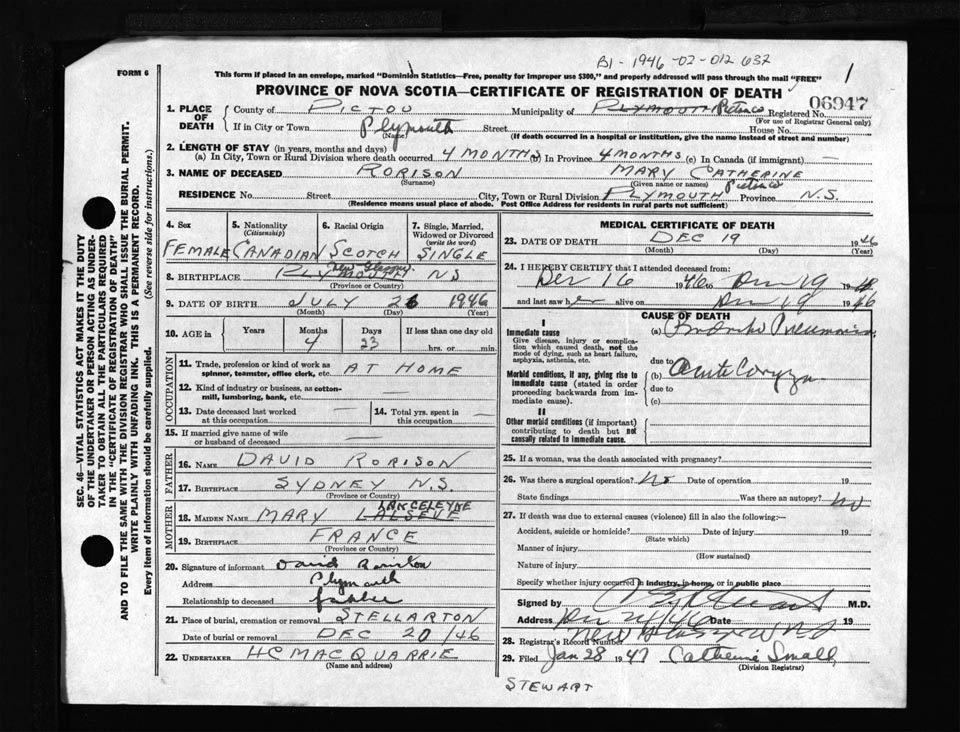 B1-1946-02-012 632
1
FORM 6
This form if placed in an envelope, marked "Dominion Statistics—Free, penalty for improper use $300," and properly addressed will pass through the mail "FREE"
PROVINCE OF NOVA SCOTIA—CERTIFICATE OF REGISTRATION OF DEATH
06947
1. PLACE OF DEATH County of PICTOU Municipality of PLYMOUTH Pictou Co Registered No.
(For use of Registrar General only)
If in City or Town Plymouth Street House No.
(Name) (If death occurred in a hospital or institution, give the name instead of street and number)
2. LENGTH OF STAY (in years, months and days)
(a) In City, Town or Rural Division where death occurred 4 MONTHS (b) In Province 4 MONTHS (c) In Canada (if immigrant) —
3. NAME OF DECEASED RORISON MARY CATHERINE
(Surname) (Given name or names)
RESIDENCE No. Street City, Town or Rural Division PLYMOUTH Pictou Co Province N.S.
(Residence means usual place of abode. Post Office Address for residents in rural parts not sufficient)
4. Sex FEMALE
5. Nationality (Citizenship) CANADIAN
6. Racial Origin SCOTCH
7. Single, Married, Widowed or Divorced (write the word) SINGLE
8. BIRTHPLACE PLYMOUTH New Glasgow NS
(Province or Country)
9. DATE OF BIRTH JULY 26 1946
(Month) (Day) (Year)
10. AGE in Years Months 4 Days 23 If less than one day old hrs. or min.
OCCUPATION
11. Trade, profession or kind of work as spinner, teamster, office clerk, etc. AT HOME
12. Kind of industry or business, as cotton-mill, lumbering, bank, etc. —
13. Date deceased last worked at this occupation —
14. Total yrs. spent in this occupation —
15. If married give name of wife or husband of deceased —
FATHER
16. NAME DAVID RORISON
17. BIRTHPLACE SYDNEY N.S.
(Province or Country)
MOTHER
18. MAIDEN NAME MARY
19. BIRTHPLACE FRANCE
(Province or Country)
20. Signature of informant David Rorison
Address Plymouth
Relationship to deceased father
21. Place of burial, cremation or removal STELLARTON
Date of burial or removal DEC 20/46
22. UNDERTAKER H C MACQUARRIE
(Name and address)
MEDICAL CERTIFICATE OF DEATH
23. DATE OF DEATH DEC 19 1946
(Month) (Day) (Year)
24. I HEREBY CERTIFY that I attended deceased from:
Dec 16 1946 to Dec 19 1946
and last saw her alive on Dec 19 1946
CAUSE OF DEATH
I
Immediate cause (a) Broncho Pneumonia
Give disease, injury or complication which caused death, not the mode of dying, such as heart failure, asphyxia, asthenia, etc.
due to
Morbid conditions, if any, giving rise to immediate cause (stated in order proceeding backwards from immediate cause).
(b) Acute Coryza
due to
(c)
II
Other morbid conditions (if important) contributing to death but not causally related to immediate cause.
25. If a woman, was the death associated with pregnancy?
26. Was there a surgical operation? No Date of operation 19
State findings Was there an autopsy? No
27. If death was due to external causes (violence) fill in also the following:—
Accident, suicide or homicide? Date of injury 19
(State which)
Manner of injury
(How sustained)
Nature of injury
Specify whether injury occurred in industry, in home, or in public place
Signed by M.D.
Address Date 19
Dec 24/46
New Glasgow NS
28. Registrar's Record Number
29. Filed Jan 28 1947 Catherine Small
(Division Registrar)
STEWART
SEC. 46—VITAL STATISTICS ACT MAKES IT THE DUTY
OF THE UNDERTAKER OR PERSON ACTING AS UNDER-
TAKER TO OBTAIN ALL THE PARTICULARS REQUIRED
IN THE "CERTIFICATE OF REGISTRATION OF DEATH"
AND TO FILE THE SAME WITH THE DIVISION REGISTRAR WHO SHALL ISSUE THE BURIAL PERMIT.
WRITE PLAINLY WITH UNFADING INK. THIS IS A PERMANENT RECORD.
Every item of information should be carefully supplied. (See reverse side for instructions.)